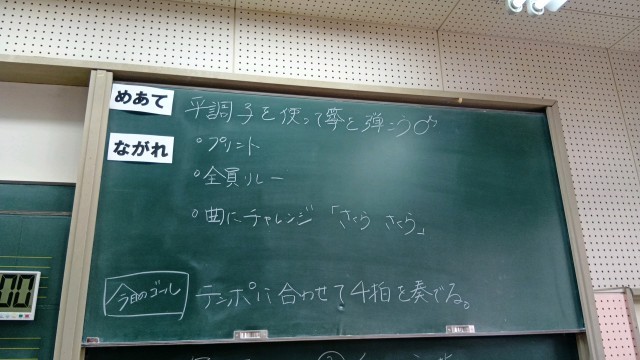 めあて 平調子を使って箏を弾こう
ながれ ○プリント
○全員リレー
○曲にチャレンジ「さくら さくら」
今日のゴール テンポに合わせて4拍を奏でる。
00